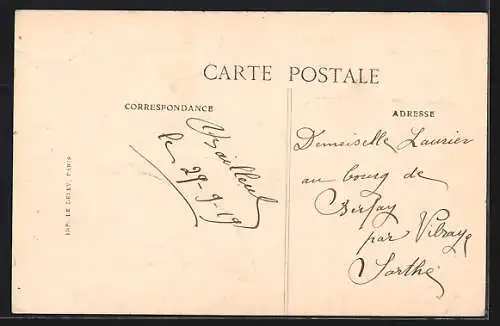 CARTE POSTALE
CORRESPONDANCE
Bailleul
le 29-9-19
ADRESSE
Demoiselle Launier
au bourg de
Berfay
par Vibraye
Sarthe
IMP. LE DELEY, PARIS